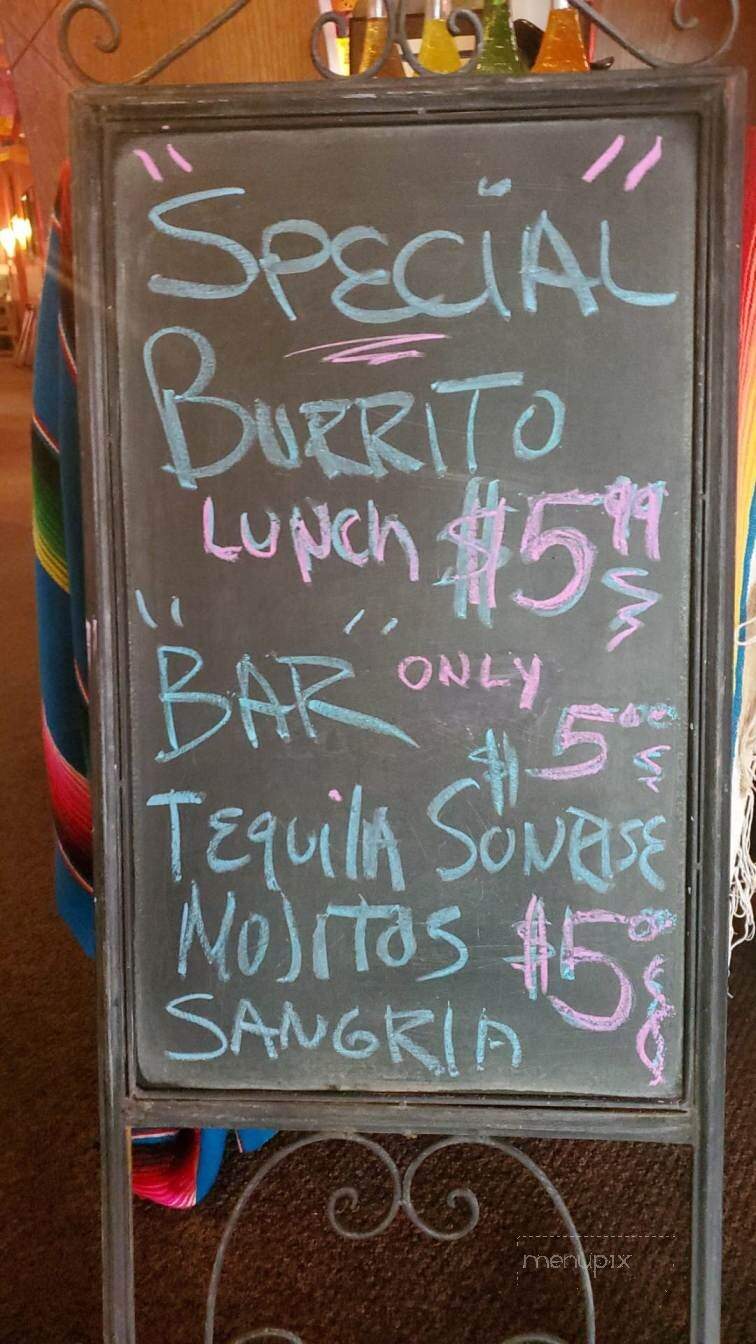 "SPECIAL"
BURRITO
LUNCH $5.99
"BAR" ONLY
$5.00
TEQUILA SONRISE
MOJITOS $5.00
SANGRIA
menupix